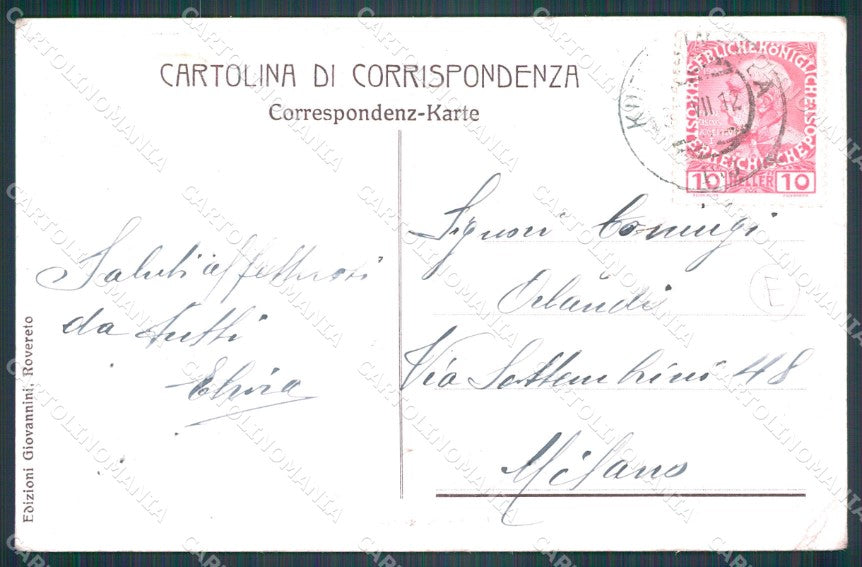 CARTOLINA DI CORRISPONDENZA
Correspondenz-Karte
Saluti affettuosi
da tutti
Elvira
Signori
Orlandi
Via Settembrini 48
Milano
Edizioni Giovannini, Rovereto
KAISERLICHE KÖNIGLICHE
ÖSTERREICHISCHE POST
10 HELLER 10
VIII 12
E
CARTOLINOMANIA